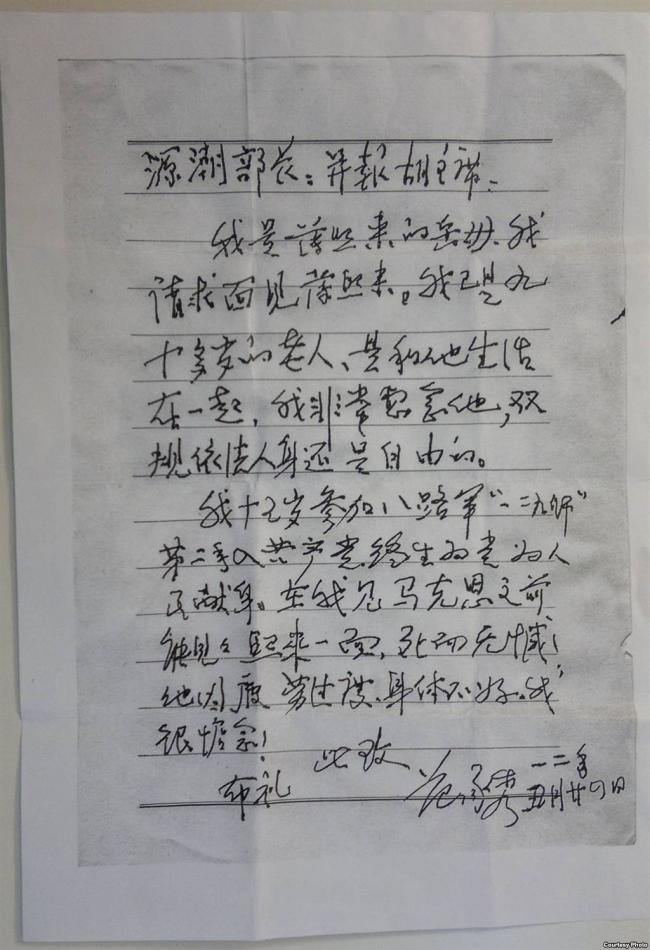 源潮部长：并报胡主席：
我是薄熙来的岳母，我
请求面见薄熙来。我已是九
十多岁的老人、是和他生活
在一起，我非常想念他，双
规依法人身还是自由的。
我十五岁参加八路军“一二九师”
第二年入共产党，终生为党为人
民献身。在我见马克思之前
能见々熙来一面，死而无憾！
他因疲劳过度，身体不好，我
很惦念！
此致
布礼
范承秀
一二年
五月廿四日
Courtesy Photo